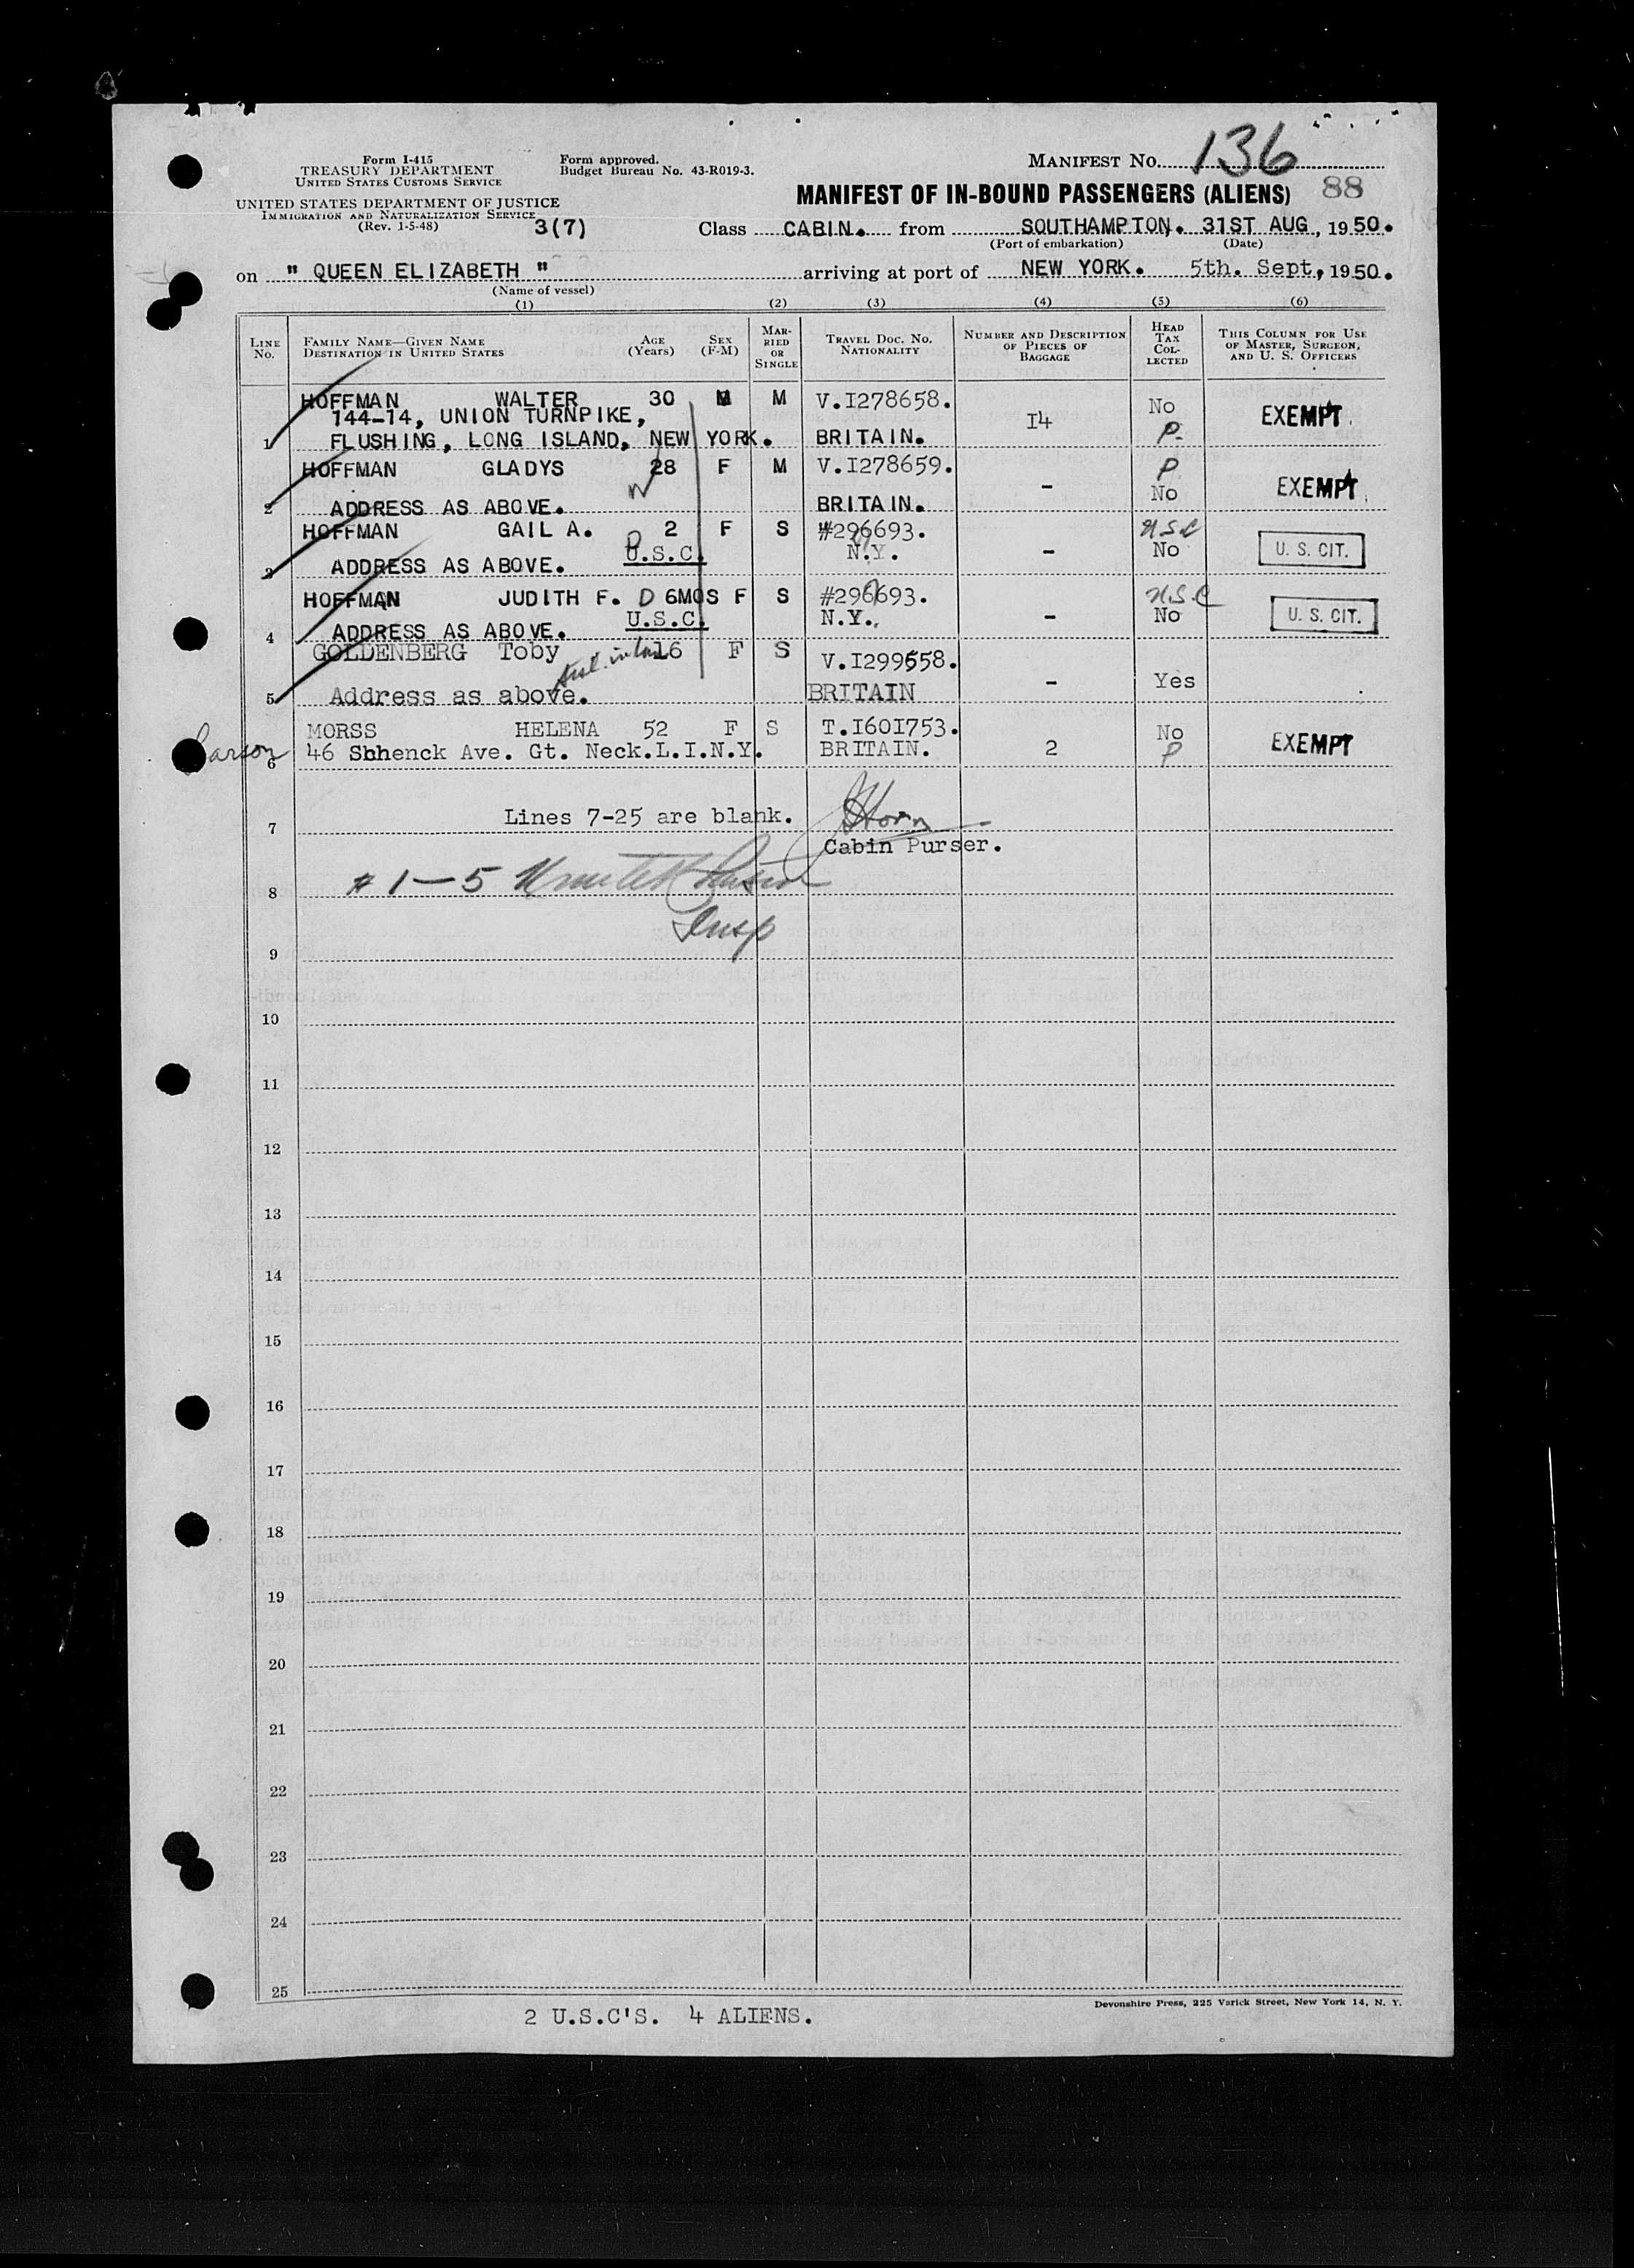 136
Form I-415
TREASURY DEPARTMENT
UNITED STATES CUSTOMS SERVICE
UNITED STATES DEPARTMENT OF JUSTICE
IMMIGRATION AND NATURALIZATION SERVICE
(Rev. 1-5-48)
3(7)
Form approved.
Budget Bureau No. 43-R019-3.
MANIFEST No.
MANIFEST OF IN-BOUND PASSENGERS (ALIENS) 88
Class CABIN. from SOUTHAMPTON. 31ST AUG, 1950.
(Port of embarkation) (Date)
on " QUEEN ELIZABETH " arriving at port of NEW YORK. 5th. Sept, 1950.
(Name of vessel)
(1) (2) (3) (4) (5) (6)
LINE No. FAMILY NAME—GIVEN NAME DESTINATION IN UNITED STATES AGE (Years) SEX (F-M) MARRIED OR SINGLE TRAVEL DOC. NO. NATIONALITY NUMBER AND DESCRIPTION OF PIECES OF BAGGAGE HEAD TAX COLLECTED THIS COLUMN FOR USE OF MASTER, SURGEON, AND U. S. OFFICERS
HOFFMAN WALTER 30 M M V.I278658. I4 No EXEMPT
144-14, UNION TURNPIKE,
1 FLUSHING, LONG ISLAND, NEW YORK. BRITAIN. P-
HOFFMAN GLADYS 28 F M V.I278659. - P EXEMPT
No
2 ADDRESS AS ABOVE. BRITAIN.
HOFFMAN GAIL A. 2 F S #296693. USC
U.S.C. N.Y. - No U. S. CIT.
3 ADDRESS AS ABOVE.
HOFFMAN JUDITH F. D 6MOS F S #296693. USC
U.S.C. N.Y. - No U. S. CIT.
4 ADDRESS AS ABOVE.
GOLDENBERG Toby 16 F S V.I299658.
5 Address as above. BRITAIN - Yes
MORSS HELENA 52 F S T.I601753. No
Larson 6 46 Schenck Ave. Gt. Neck.L.I.N.Y. BRITAIN. 2 P EXEMPT
7 Lines 7-25 are blank.
Horn
Cabin Purser.
8 # 1-5
Insp
9
10
11
12
13
14
15
16
17
18
19
20
21
22
23
24
25
Devonshire Press, 225 Varick Street, New York 14, N. Y.
2 U.S.C'S. 4 ALIENS.